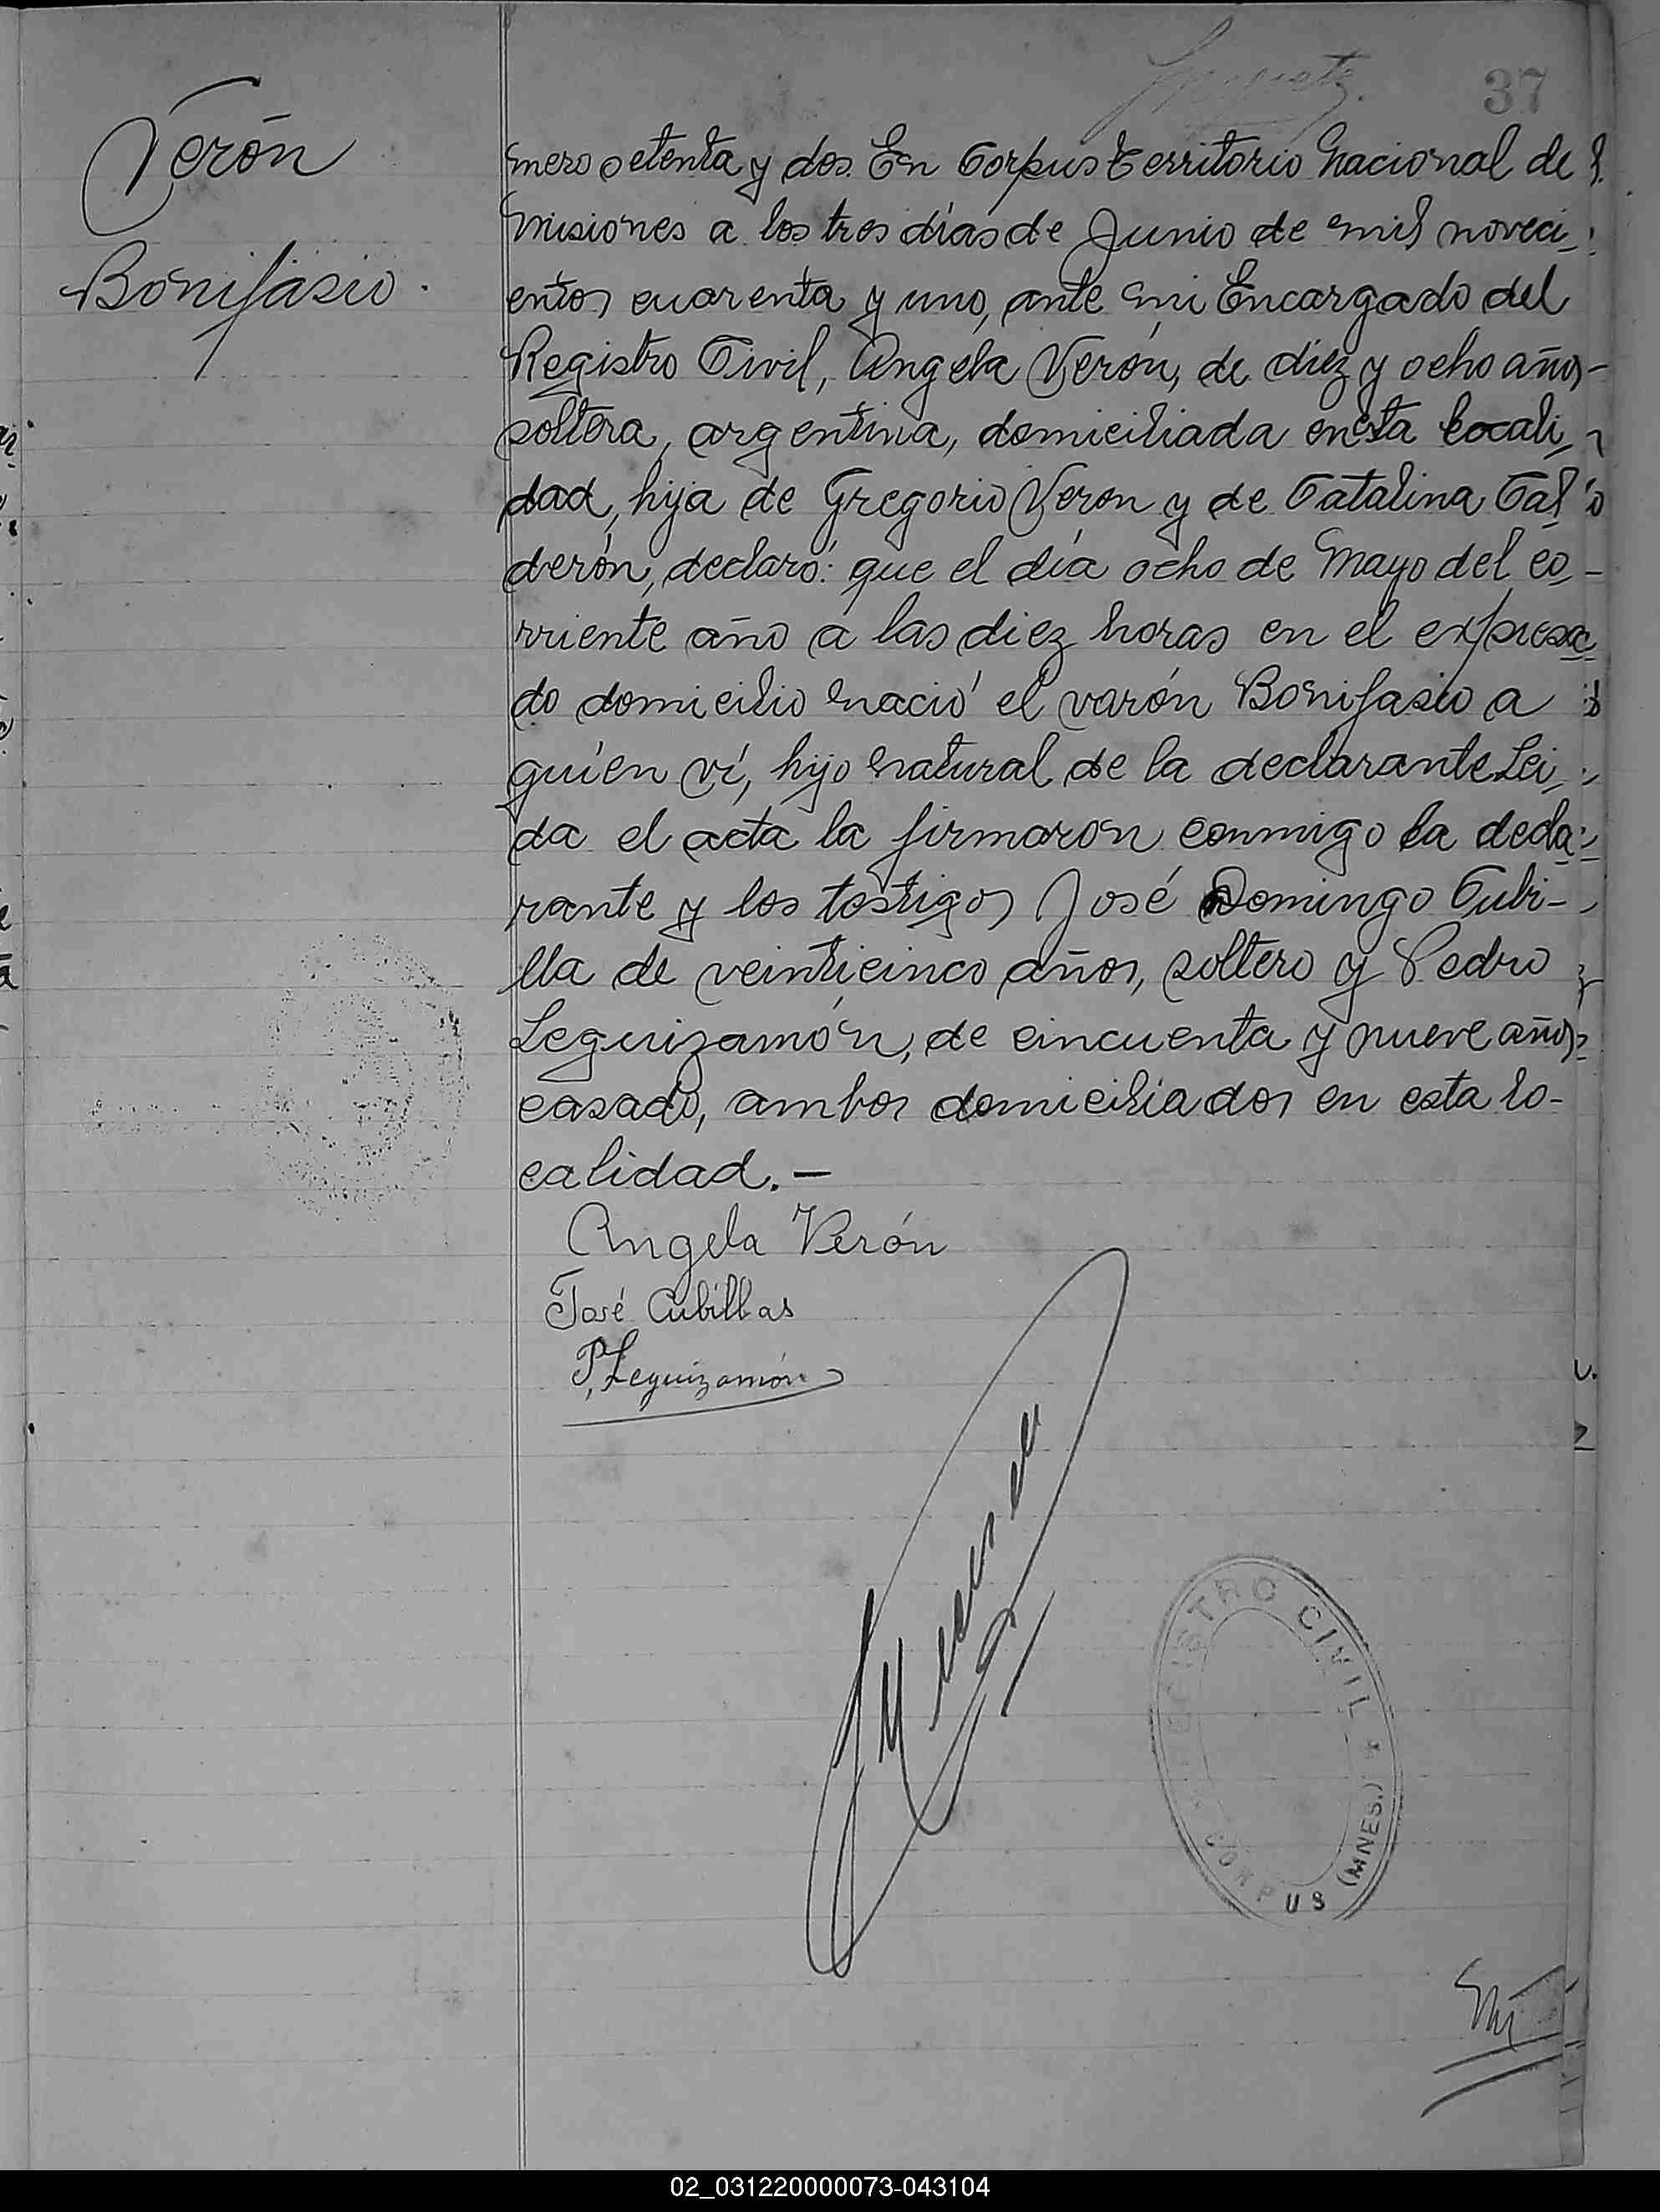 37
Verón
Bonifasio.
mero setenta y dos. En Corpus Territorio Nacional de
Misiones a los tres días de Junio de mil noveci-
entos cuarenta y uno, ante mi Encargado del
Registro Civil, Angela Verón, de diez y ocho años-
soltera, argentina, domiciliada en esta locali-
dad, hija de Gregorio Veron y de Catalina Cal
derón, declaró: que el día ocho de Mayo del co-
rriente año a las diez horas en el expresa
do domicilio nació el varón Bonifasio a
quien ví, hijo natural de la declarante Lei-
da el acta la firmaron conmigo la decla-
rante y los testigos José Domingo Cubi-
lla de veinticinco años, soltero y Pedro
Leguizamón, de cincuenta y nueve años
casado, ambos domiciliados en esta lo-
calidad.-
Angela Verón
José Cubillas
P. Leguizamón
REGISTRO CIVIL
CORPUS (MNES.)
02_031220000073-043104